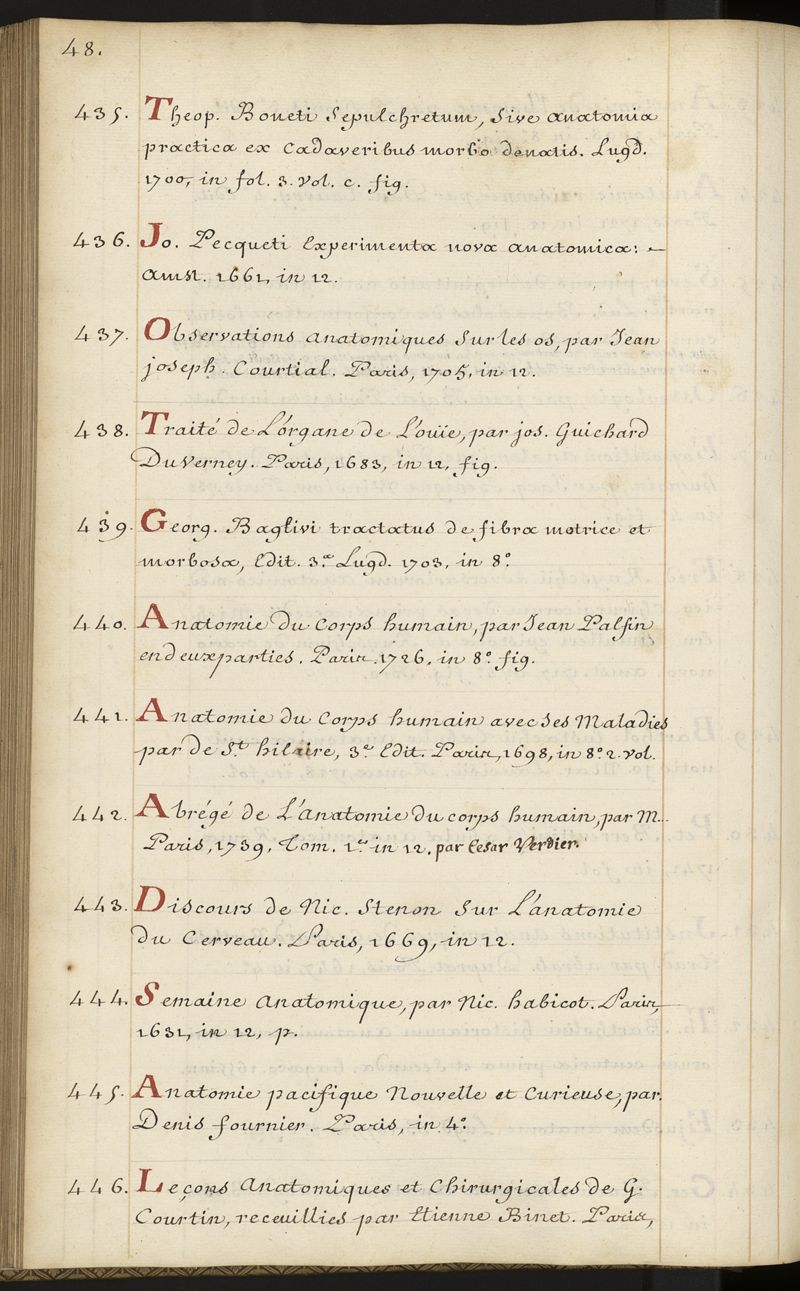 48.
435. Theop. Boneti Sepulchretum, Sive anatomia
practica ex Cadaveribus morbo denatis. Lugd.
1700, in fol. 3. Vol. c. fig.
436. Jo. Pecqueti Experimenta nova anatomica:
Amst. 1661, in 12.
437. Observations anatomiques Sur les os, par Jean
joseph. Courtial. Paris, 1705, in 12.
438. Traité de L'órgane de L'oüie, par jos. Guichard
DuVerney. Paris, 1683, in 12, fig.
439. Georg. Baglivi tractatus de fibra motrice et
morbosa, Edit. 3.a Lugd. 1703, in 8.o
440. Anatomie du Corps humain, par Jean Palfin
en deux parties. Paris. 1726. in 8.o fig.
441. Anatomie du Corps humain avec Ses Maladies
par de St. hilaire, 3.e Edit. Paris, 1698, in 8.o 2. vol.
442. Abrégé de L'anatomie du corps humain, par M...
Paris, 1739, Tom. 1.er in 12. par Cesar Verdier.
443. Discours de Nic. Stenon Sur L'anatomie
du Cerveau. Paris, 1669, in 12.
444. Semaine Anatomique, par Nic. habicot. Paris,
1631, in 12, p.
445. Anatomie pacifique Nouvelle et Curieuse, par.
Denis fournier. Paris, in 4.o
446. Leçons Anatomiques et Chirurgicales de G.
Courtin, receuillies par Etienne Binet. Paris,